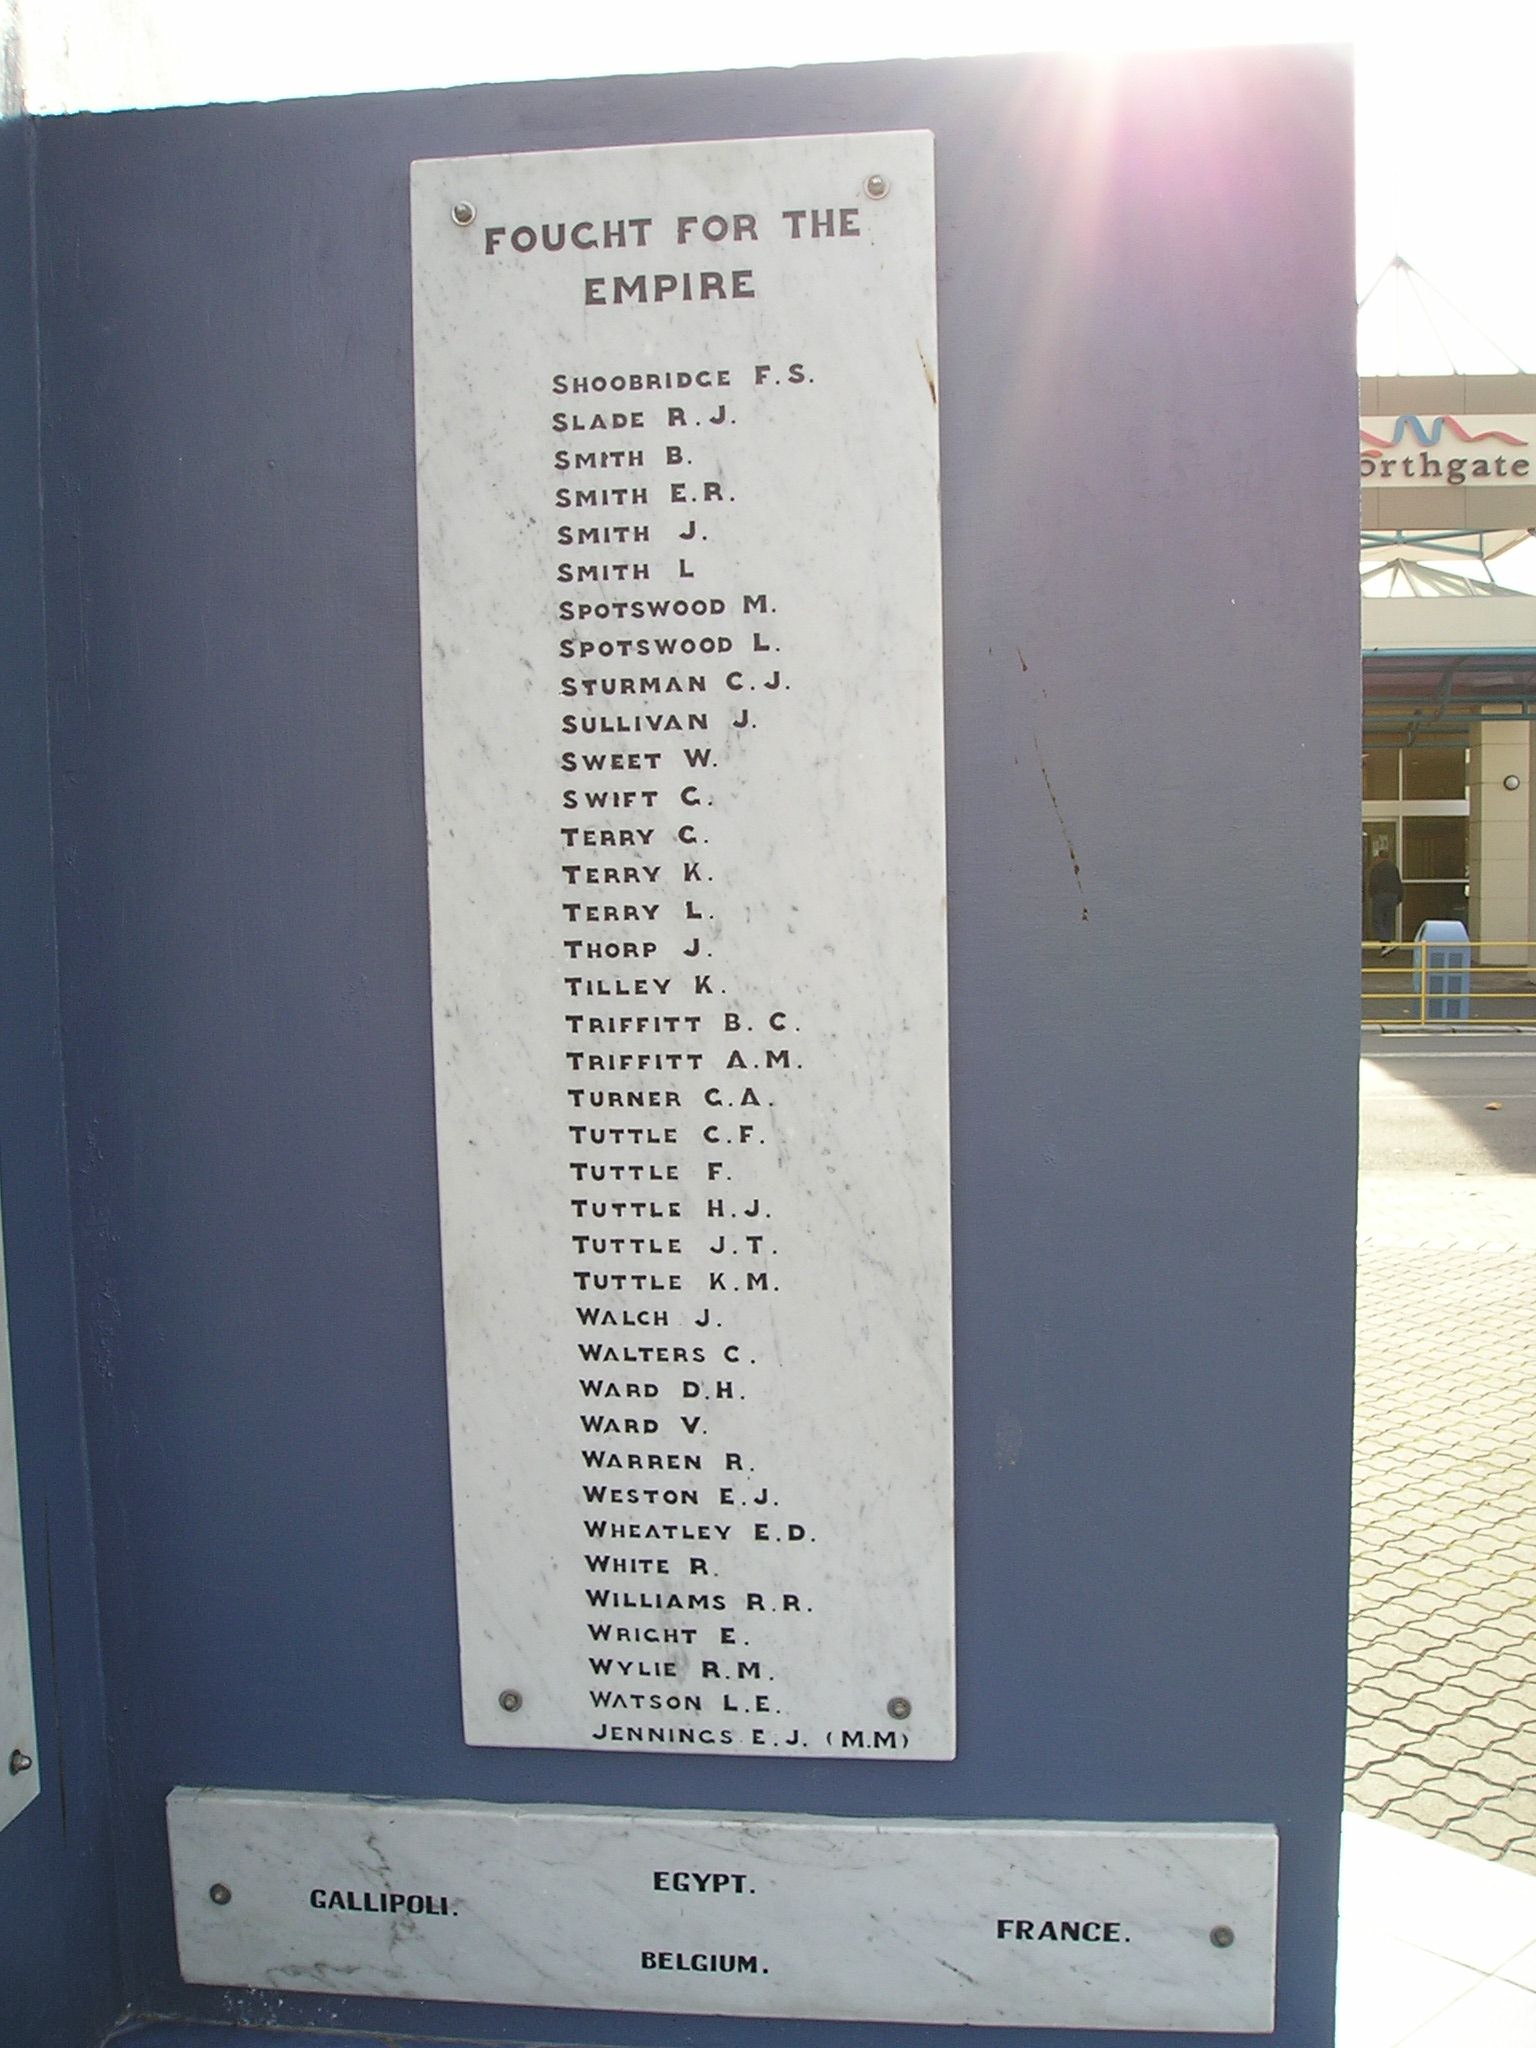 FOUGHT FOR THE
EMPIRE
SHOOBRIDGE F.S.
SLADE R.J.
SMITH B.
SMITH E.R.
SMITH J.
SMITH L
SPOTSWOOD M.
SPOTSWOOD L.
STURMAN C.J.
SULLIVAN J.
SWEET W.
SWIFT G.
TERRY G.
TERRY K.
TERRY L.
THORP J.
TILLEY K.
TRIFFITT B.C.
TRIFFITT A.M.
TURNER G.A.
TUTTLE C.F.
TUTTLE F.
TUTTLE H.J.
TUTTLE J.T.
TUTTLE K.M.
WALCH J.
WALTERS C.
WARD D.H.
WARD V.
WARREN R.
WESTON E.J.
WHEATLEY E.D.
WHITE R.
WILLIAMS R.R.
WRIGHT E.
WYLIE R.M.
WATSON L.E.
JENNINGS E.J. (M.M)
EGYPT.
GALLIPOLI.
FRANCE.
BELGIUM.
orthgate